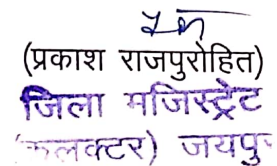 (प्रकाश राजपुरोहित)
जिला मजिस्ट्रेट
लक्टर) जयपु